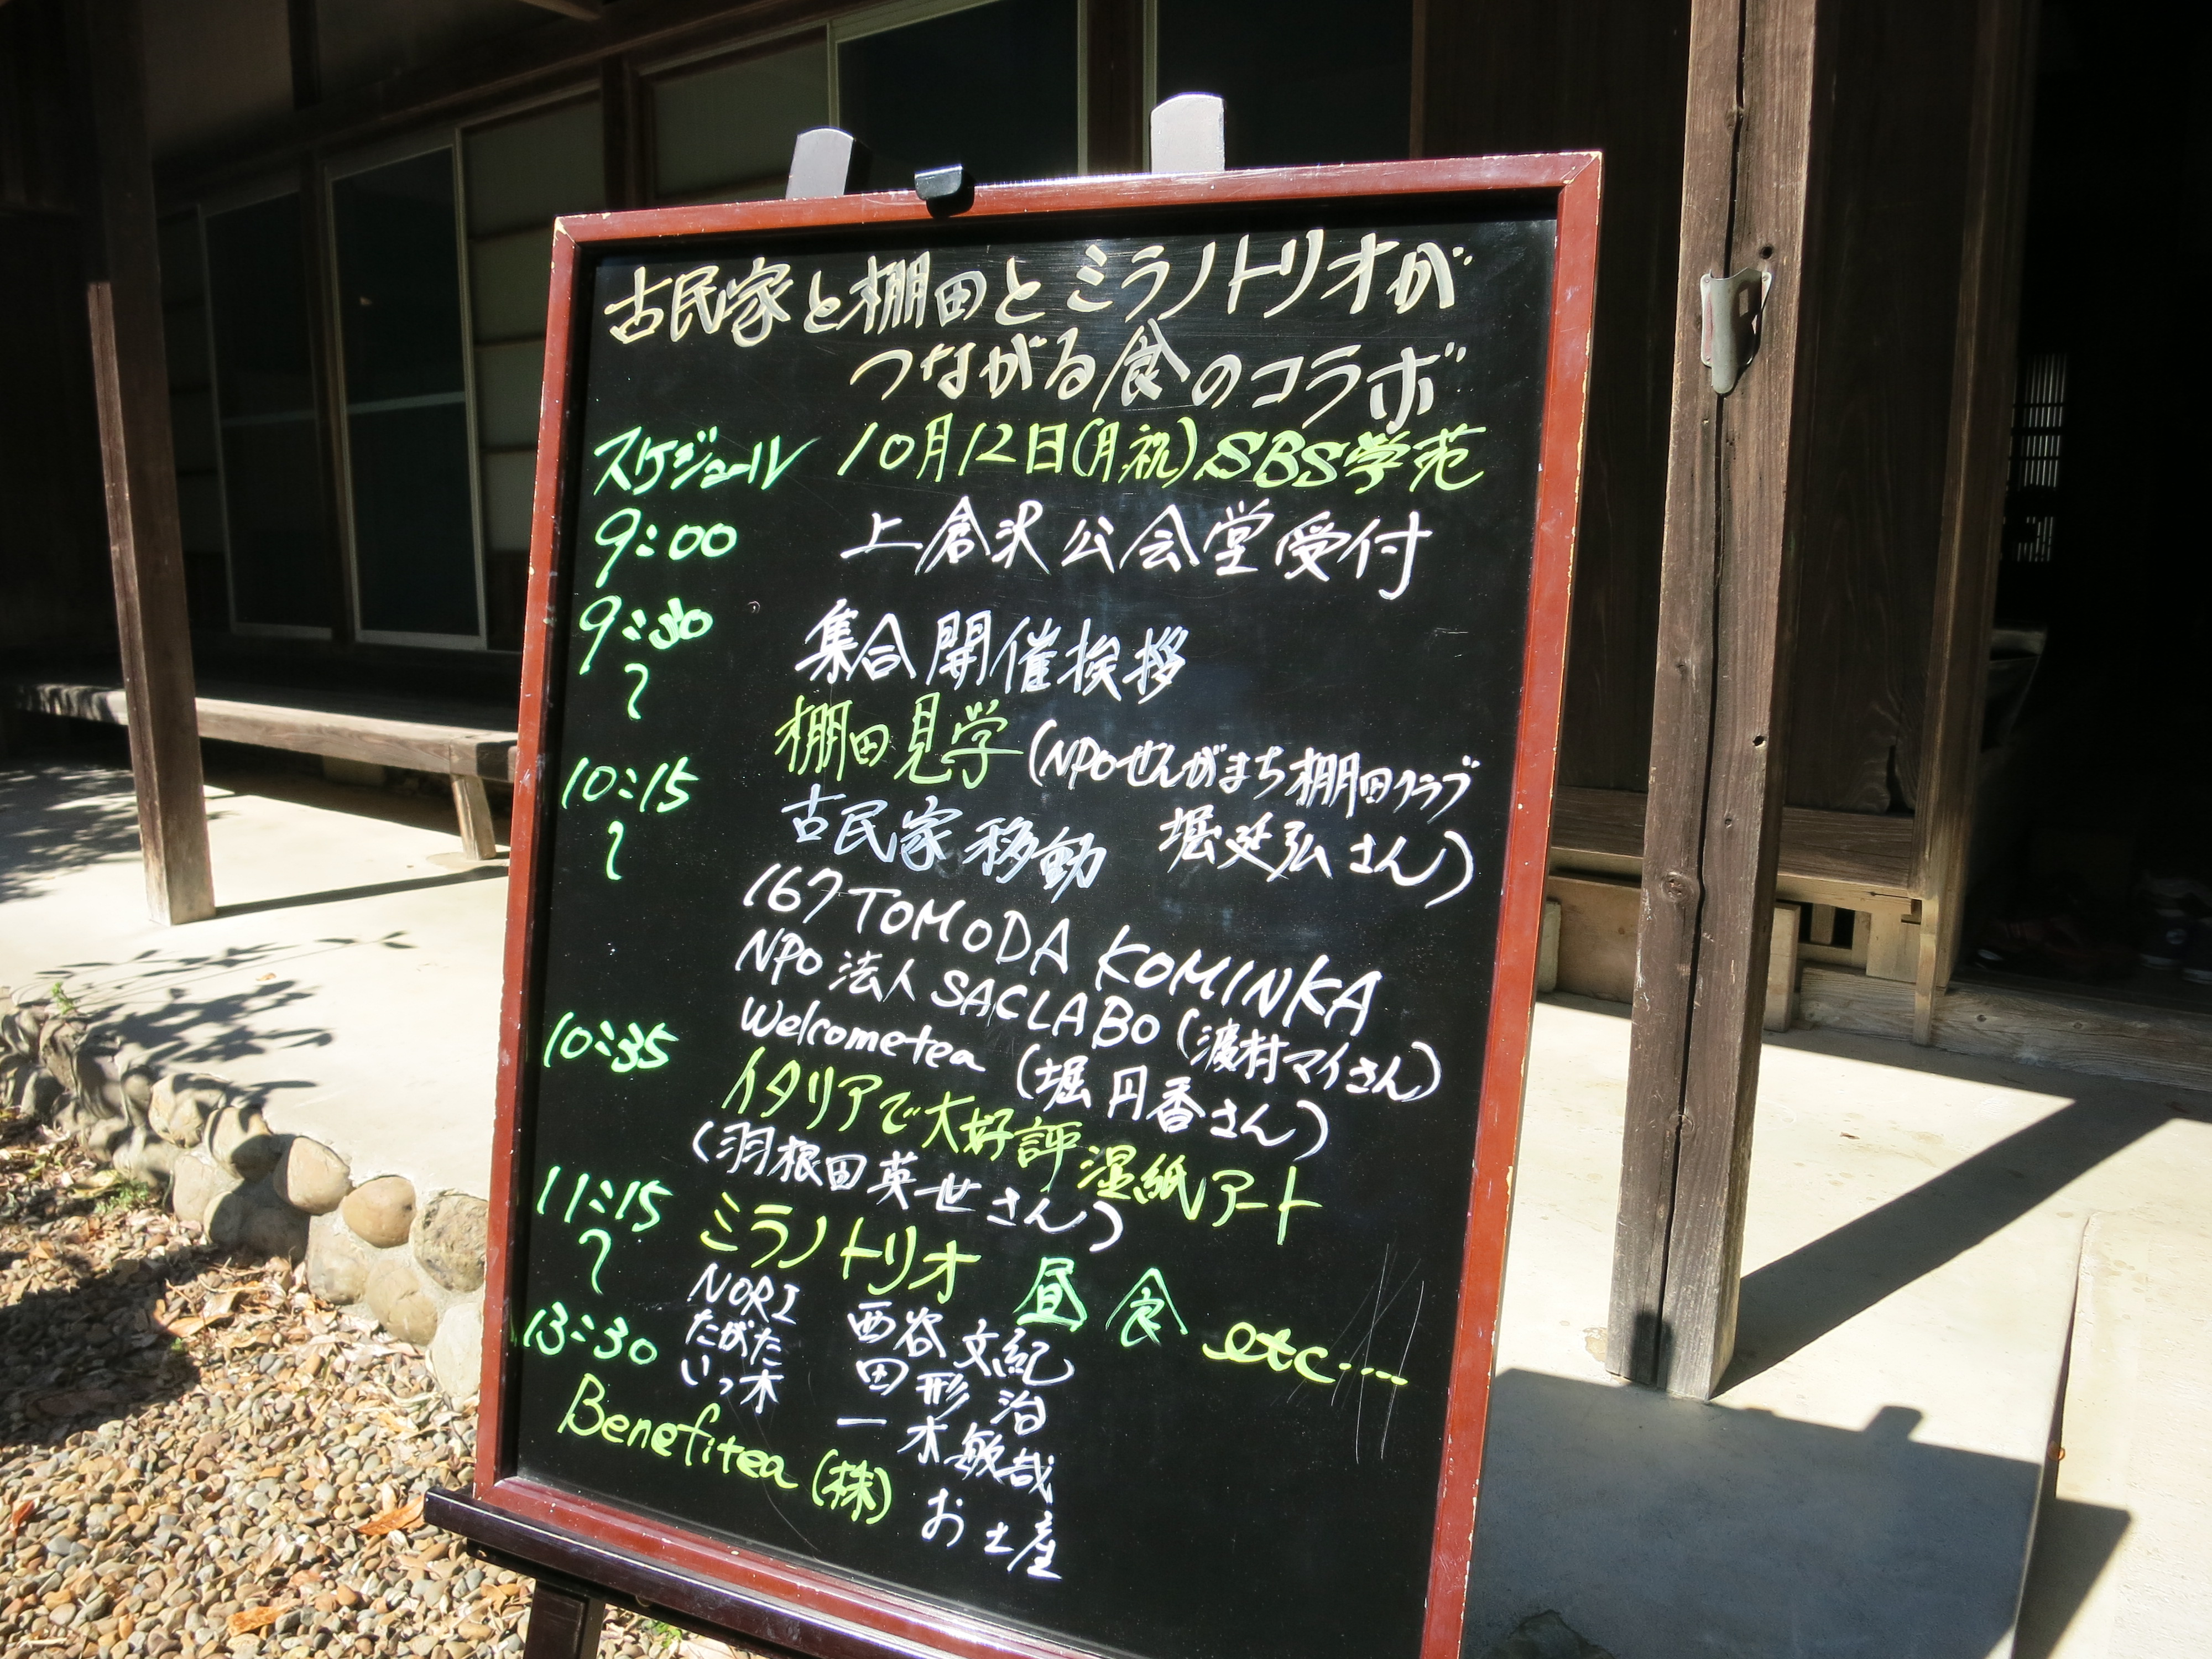 古民家と棚田とミラノトリオが
つながる食のコラボ
スケジュール 10月12日(月.祝)SBS学苑
9:00 上倉沢公会堂受付
9:30 集合開催挨拶
〜 棚田見学(NPOせんがまち棚田クラブ
堀延弘さん)
10:15 古民家移動
〜
167TOMODA KOMINKA
NPO法人SACLABO(渡村マイさん)
Welcometea(堀円香さん)
10:35 イタリアで大好評湿紙アート
(羽根田英世さん)
11:15 ミラノトリオ 昼食 etc…
〜
NORI 西谷文紀
たがた 田形治
13:30 いっ木 一木敏哉
Benefitea(株) お土産